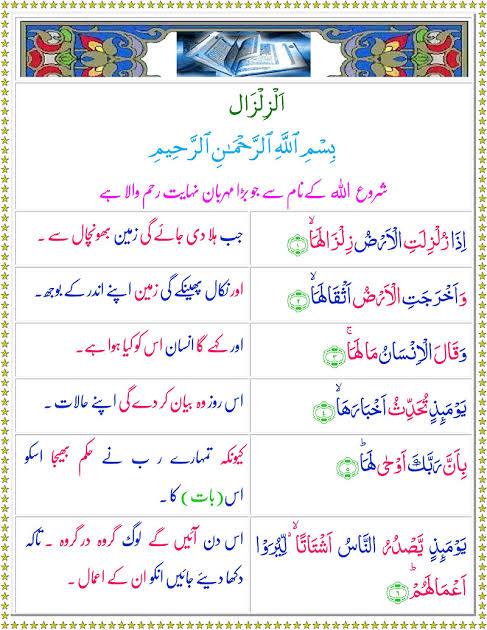 اَلْزِلْزَال
بِسْمِ اللَّهِ الرَّحْمَٰنِ الرَّحِيمِ
شروع اللہ کے نام سے جو بڑا مہربان نہایت رحم والا ہے
اِذَا زُلْزِلَتِ الْاَرْضُ زِلْزَالَهَاۙ ۝۱
جب ہلا دی جائے گی زمین بھونچال سے ۔
وَاَخْرَجَتِ الْاَرْضُ اَثْقَالَهَاۙ ۝۲
اور نکال پھینکے گی زمین اپنے اندر کے بوجھ۔
وَقَالَ الْاِنْسَانُ مَا لَهَاۚ ۝۳
اور کہے گا انسان اس کو کیا ہوا ہے۔
يَوْمَىِٕذٍ تُحَدِّثُ اَخْبَارَهَاۙ ۝۴
اس روز وہ بیان کر دے گی اپنے حالات ۔
بِاَنَّ رَبَّكَ اَوْحٰى لَهَاؕ ۝۵
کیونکہ تمہارے ر ب نے حکم بھیجا اسکو
اس (بات) کا ۔
يَوْمَىِٕذٍ يَّصْدُرُ النَّاسُ اَشْتَاتًا ۙ۬ لِّيُرَوْا
اَعْمَالَهُمْؕ ۝۶
اس دن آئیں گے لوگ گروہ در گروہ ۔ تاکہ
دکھا دیئے جائیں انکو ان کے اعمال ۔